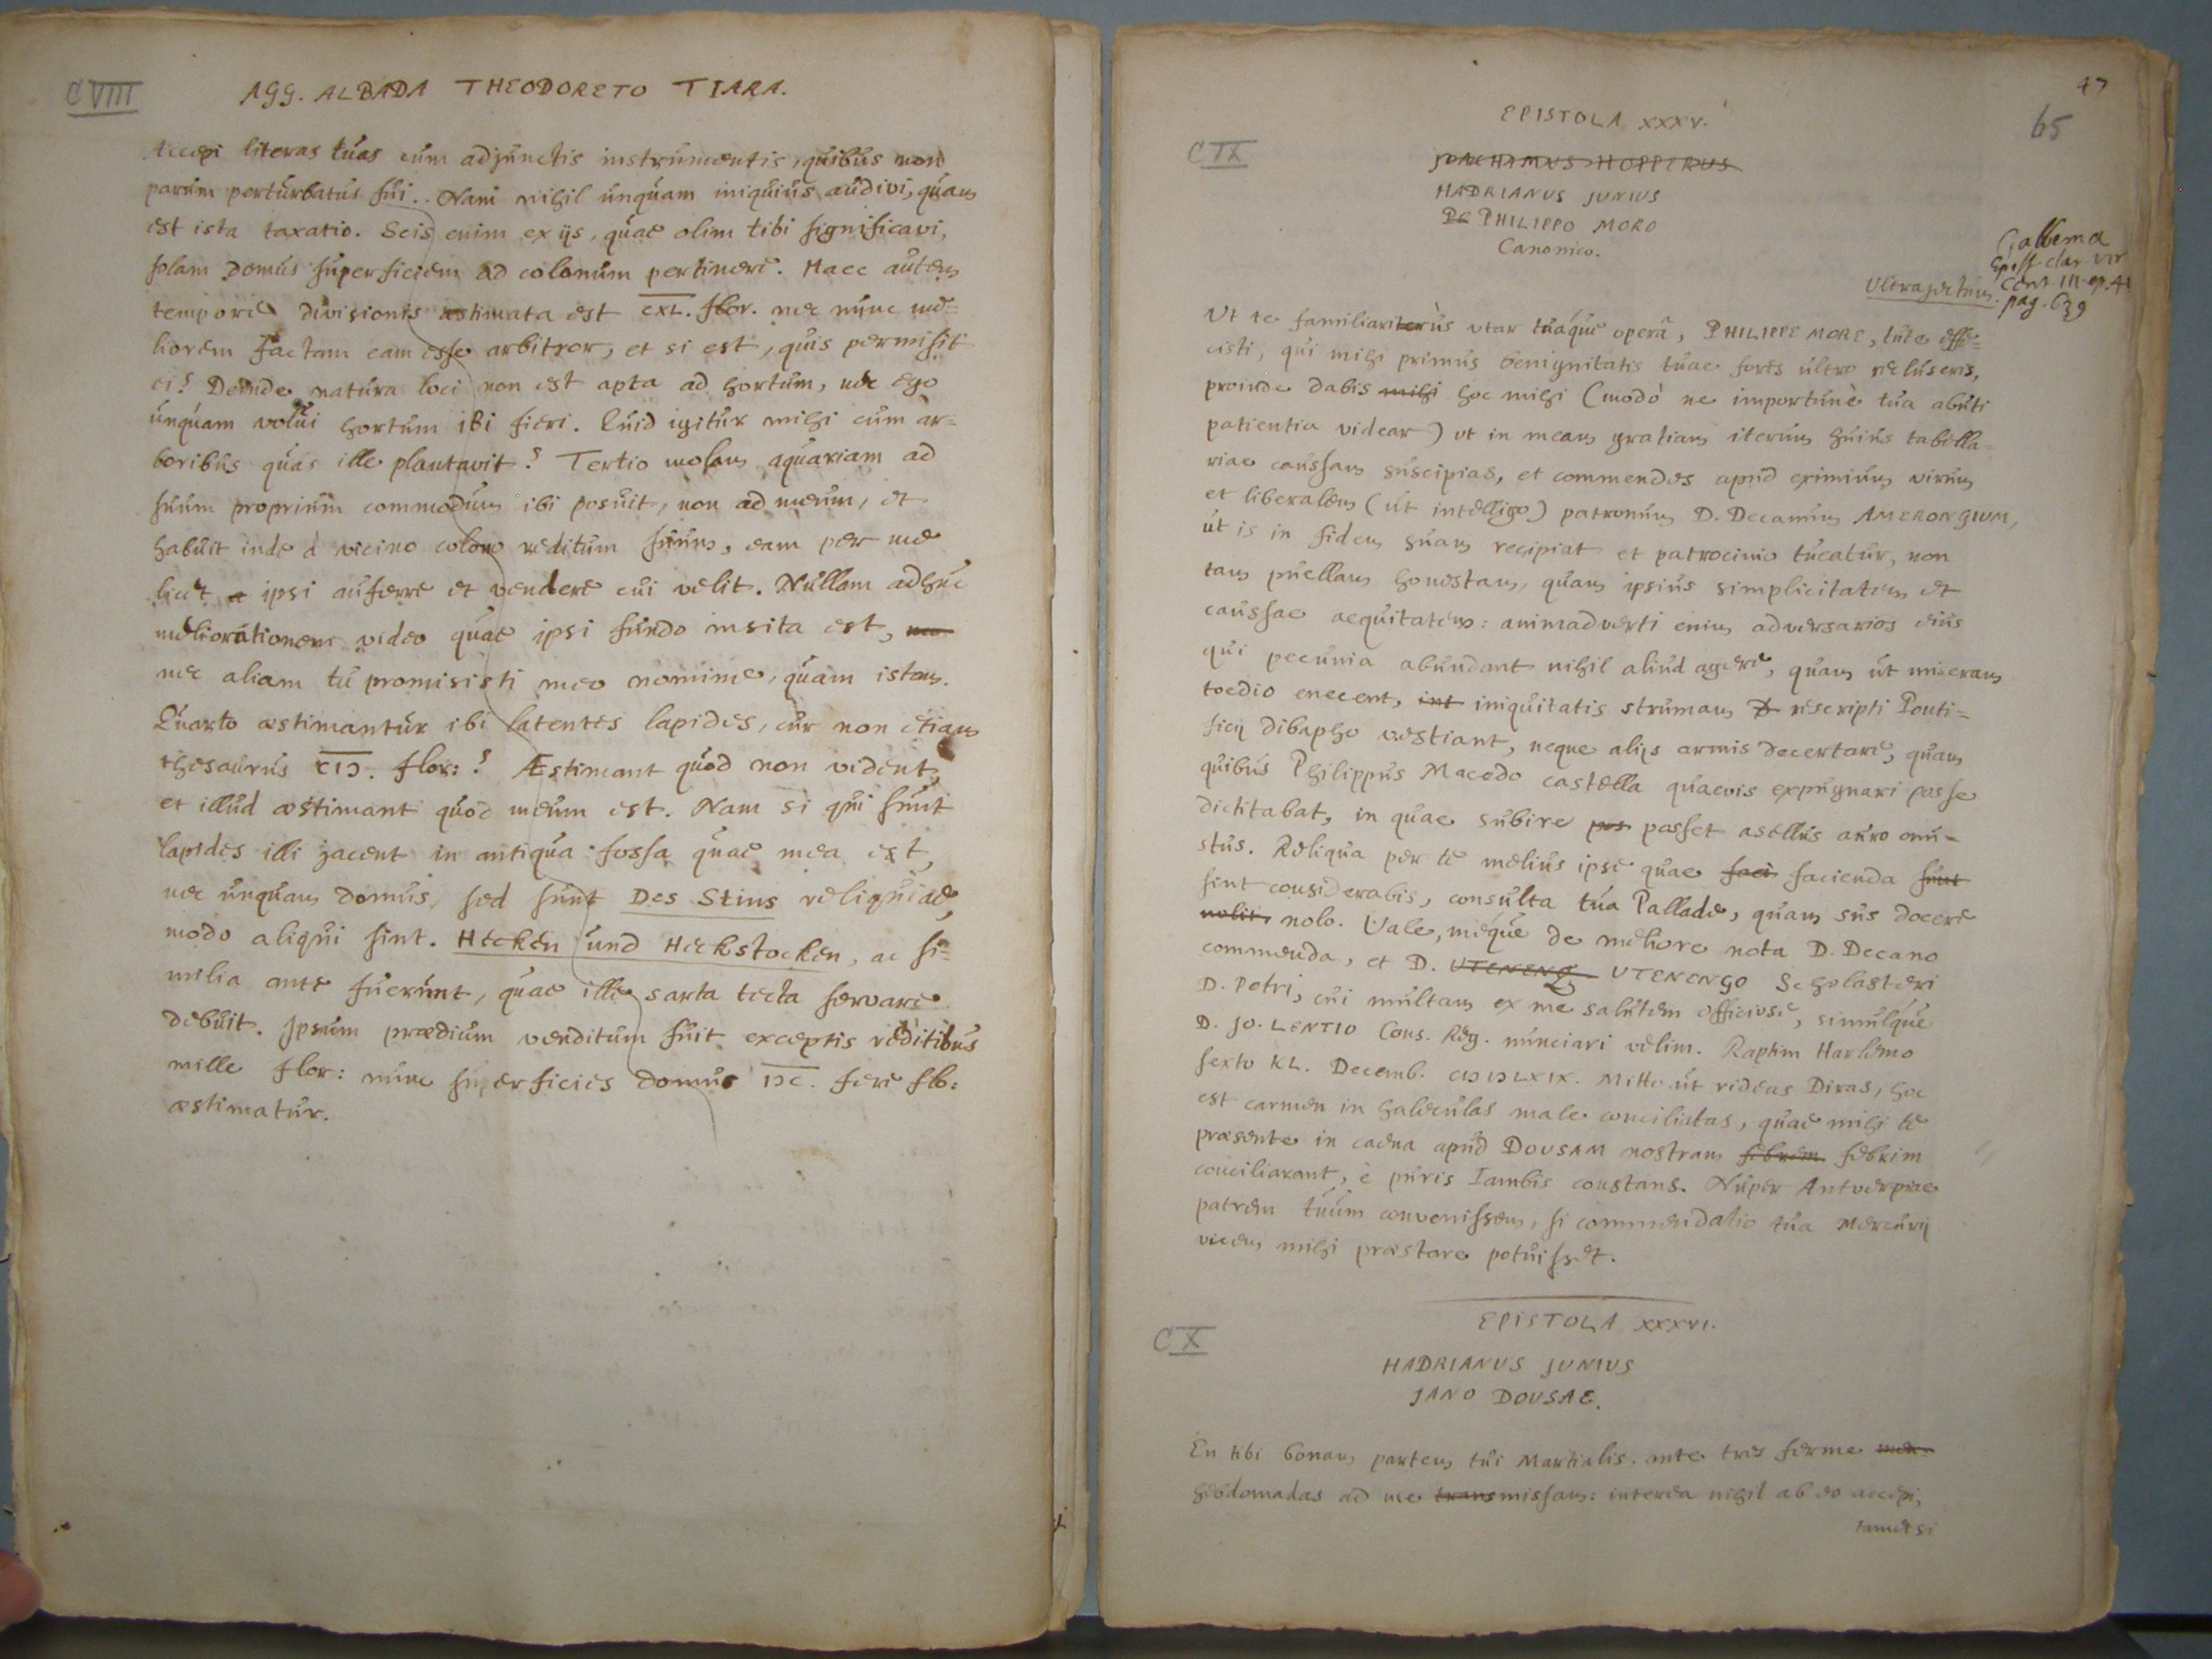 CVIII
AGG. ALBADA THEODORETO TIARA.
Accepi literas tuas cum adjunctis instrumentis, quibus non
parum perturbatus fui. Nam nihil unquam iniquius audivi, quam
est ista taxatio. Scis enim ex ijs, quae olim tibi significavi,
solam domus superficiem ad colonum pertinere. Haec autem
tempore divisionis æstimata est CXL. flor. nec nunc me=
liorem factam eam esse arbitror, et si est, quis permisit
ei? Deinde natura loci non est apta ad hortum, nec ego
unquam volui hortum ibi fieri. Quid igitur mihi cum ar=
boribus quas ille plantavit? Tertio molam aquariam ad
suum proprium commodum ibi posuit, non ad meum, et
habuit inde à vicino colono reditum suum, eam per me
licet ipsi auferre et vendere cui velit. Nullam adhuc
meliorationem video quae ipsi fundo insita est,
nec aliam tu promisisti meo nomine, quam istam.
Quarto æstimantur ibi latentes lapides, cur non etiam
thesaurus CIↃ. flor:? Æstimant quod non vident,
et illud æstimant quod meum est. Nam si qui sunt
lapides illi jacent in antiqua fossa quae mea est,
nec unquam domus, sed sunt Des Stins reliquiae,
modo aliqui sint. Hecken und Heckstocken, ac si=
milia ante fuerunt, quae ille sarta tecta servare
debuit. Ipsum prædium venditum fuit exceptis reditibus
mille flor: nunc superficies domus IↃC. fere flo:
æstimatur.
47
65
EPISTOLA XXXV.
CIX
JOACHAMUS HOPPERUS
HADRIANUS JUNIUS
PHILIPPO MORO
Canonico.
Gabbema
Epist clar vir
Cent III ep. 41
pag. 639
Ultrajectum.
Ut te familiariterùs utar tuáque operâ, PHILIPPE MORE, tute effe=
cisti, qui mihi primus benignitatis tuae fores ultro recluseris,
proinde dabis mihi hoc mihi (modò ne importunè tua abuti
patientia videar) ut in meam gratiam iterum huius tabella
riae caussam suscipias, et commendes apud eximium virum
et liberalem (ut intelligo) patronum D. Decanum AMERONGIUM,
ut is in fidem suam recipiat et patrocinio tueatur, non
tam puellam honestam, quam ipsius simplicitatem et
caussae aequitatem: animadverti enim adversarios eius
qui pecunia abundant nihil aliud agere, quam ut miseram
toedio enecent, int iniquitatis strumam rescripti Ponti=
ficij dibapho vestiant, neque alijs armis decertare, quam
quibus Philippus Macedo castella quaevis expugnari posse
dictitabat, in quae subire pos posset asellus auro onu=
stus. Reliqua per te melius ipse quae faci facienda sunt
sint considerabis, consulta tua Pallade, quam sus docere
nolit, nolo. Vale, méque de meliore nota D. Decano
commenda, et D. UTENENG UTENENGO Scholasteri
D. Petri, cui multam ex me salutem officiose, simulque
D. JO. LENTIO Cons. Reg. nunciari velim. Raptim Harlemo
sexto KL. Decemb. CIↃ IↃ LXIX. Mitto ut rideas Diras, hoc
est carmen in haleculas male conciliatas, quae mihi te
praesente in caena apud DOUSAM nostram febrem febrim
conciliarant, è puris Iambis constans. Nuper Antverpiae
patrem tuum convenissem, si commendatio tua Mercurij
vicem mihi præstare potuisset.
EPISTOLA XXXVI.
CX
HADRIANUS JUNIUS
JANO DOUSAE.
En tibi bonam partem tui Martialis, ante tres ferme men-
hebdomadas ad me transmissam: interea nihil ab eo accepi,
tametsi